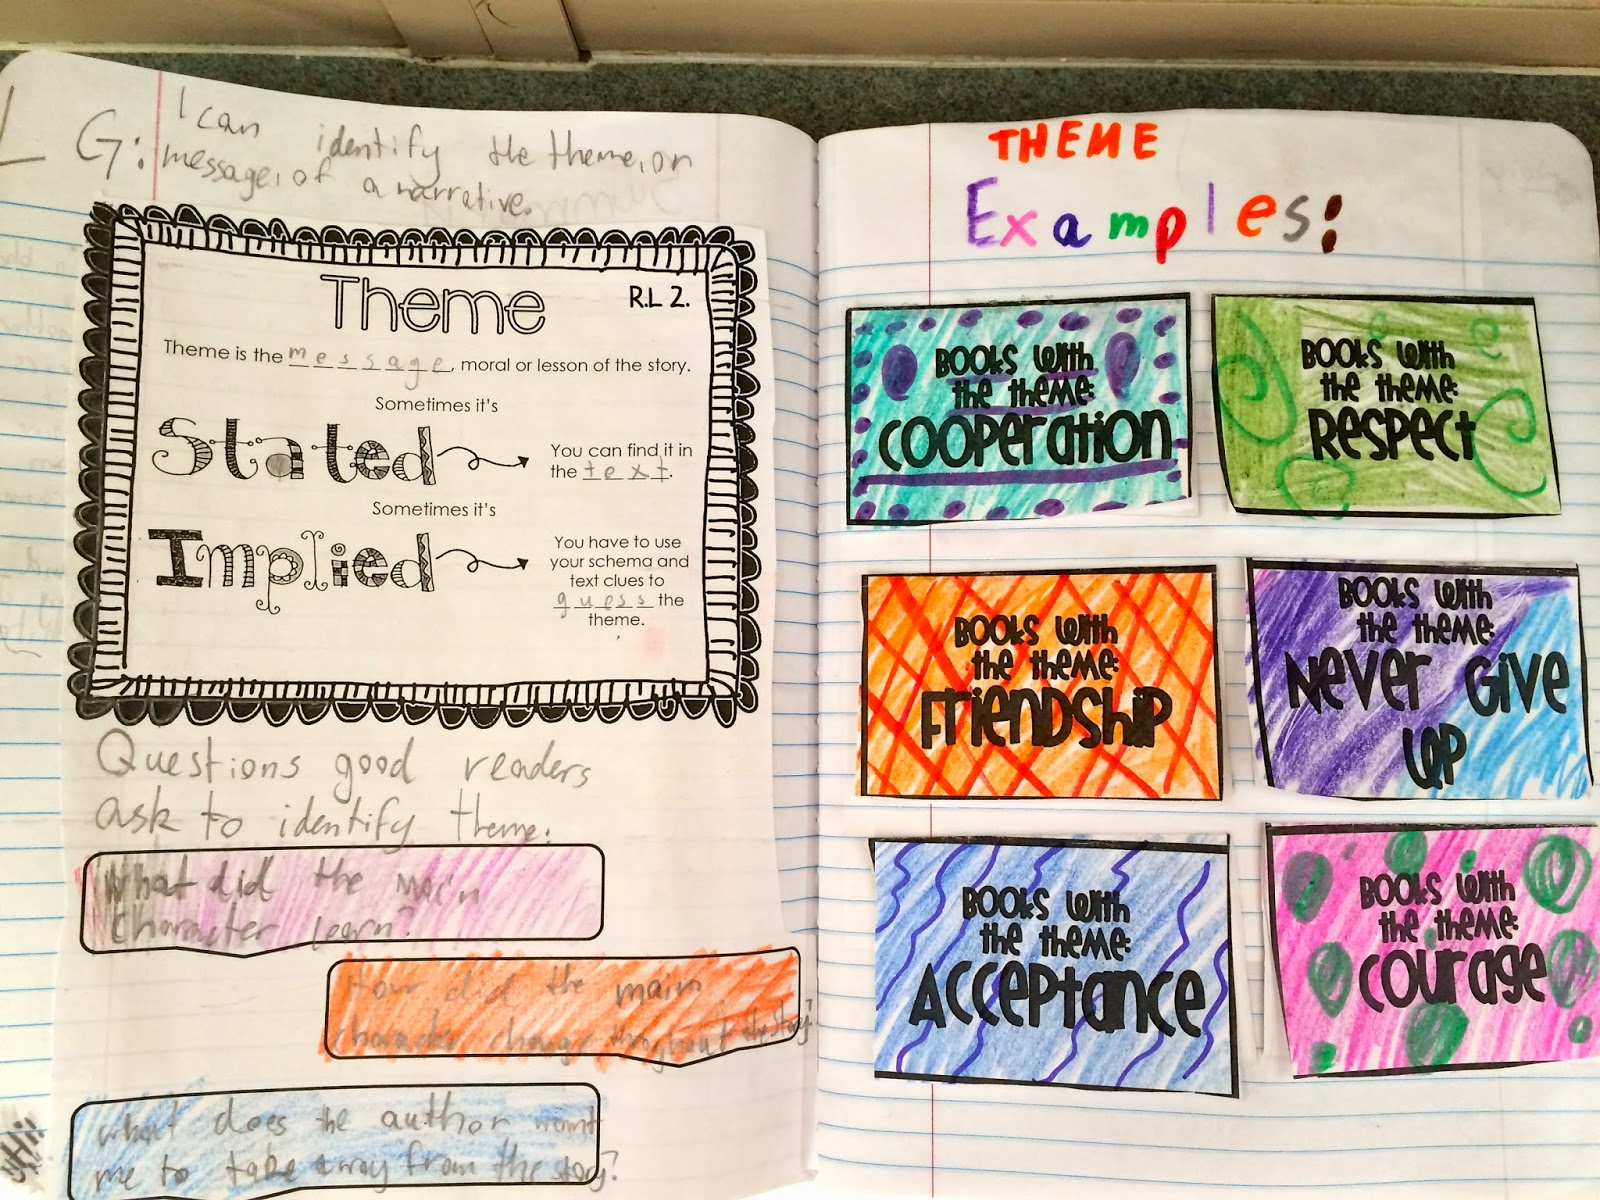 LG: I can identify the theme, or
message, of a narrative.
Theme R.L 2.
Theme is the message, moral or lesson of the story.
Sometimes it's
Stated
You can find it in
the text.
Sometimes it's
Implied
You have to use
your schema and
text clues to
guess the
theme.
Questions good readers
ask to identify theme:
What did the main
character learn?
How did the main
character change throughout the story?
what does the author want
me to take away from the story?
Hi
THEME
Examples:
Books with
the theme:
Cooperation
Books with
the theme:
Respect
Books with
the theme:
Friendship
Books with
the theme:
Never Give
Up
Books with
the theme:
Acceptance
Books with
the theme:
Courage